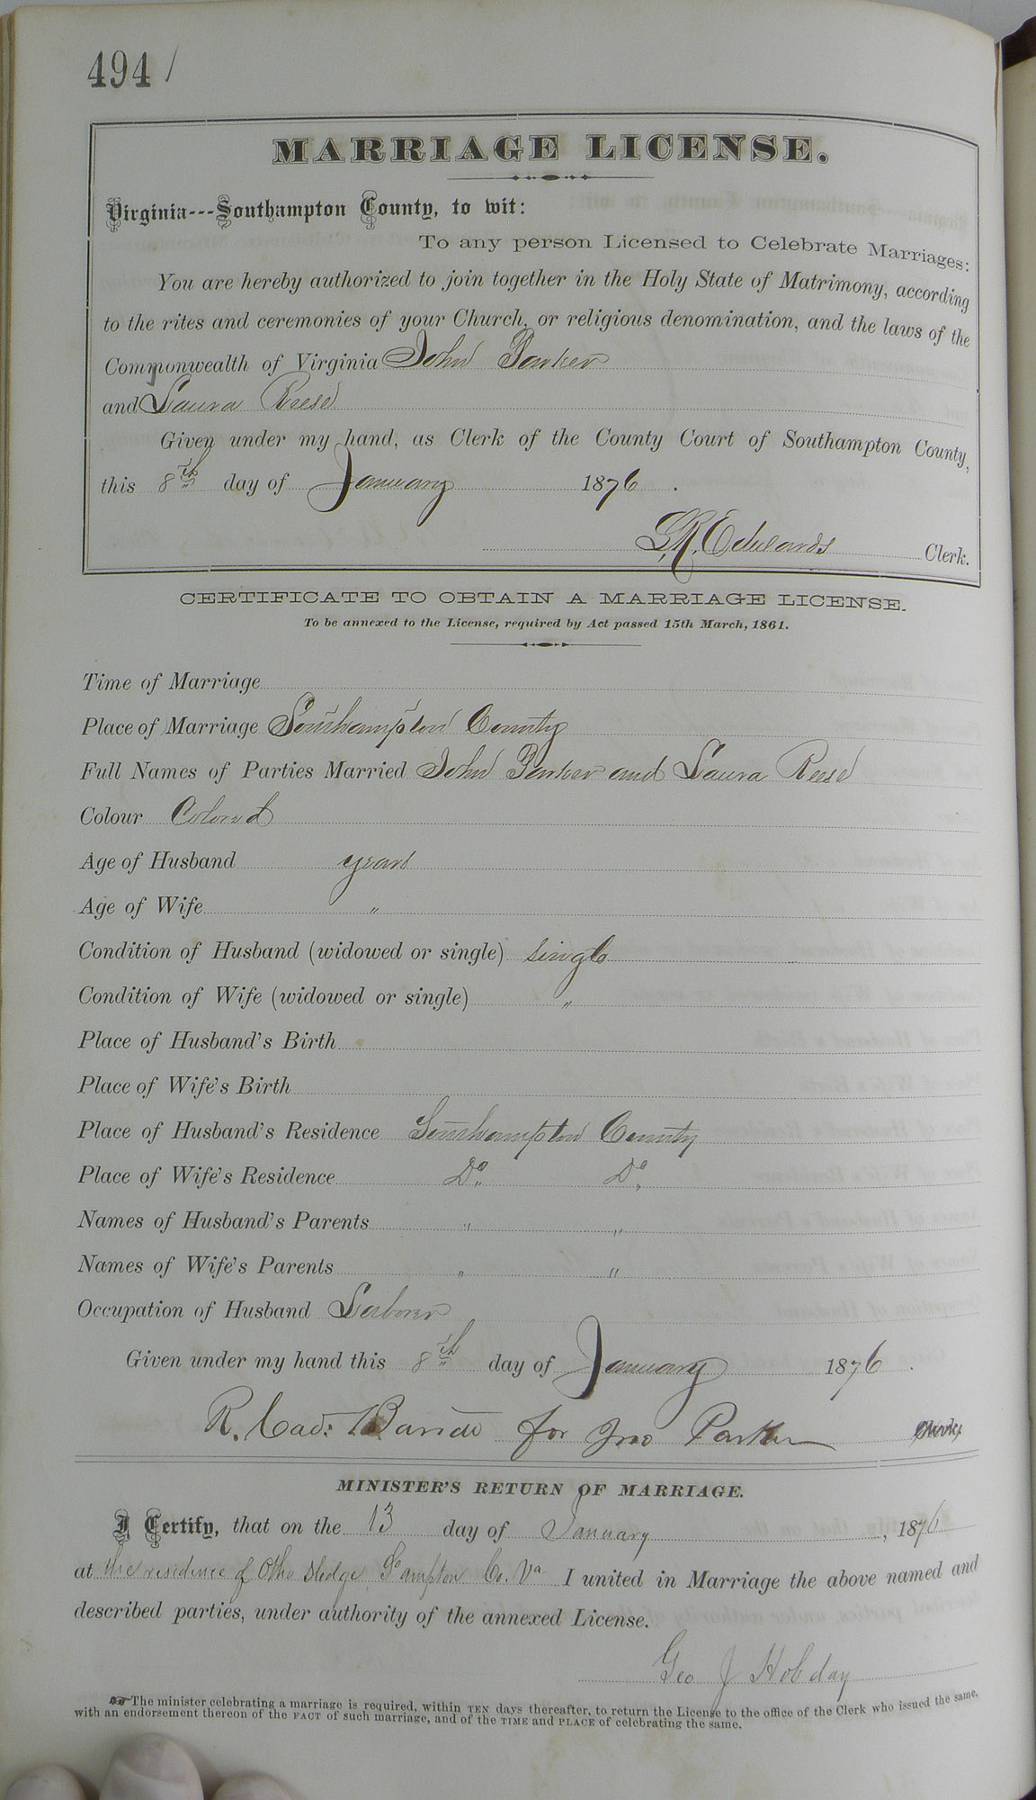 494 /
MARRIAGE LICENSE.
Virginia---Southampton County, to wit:
To any person Licensed to Celebrate Marriages:
You are hereby authorized to join together in the Holy State of Matrimony, according
to the rites and ceremonies of your Church, or religious denomination, and the laws of the
Commonwealth of Virginia John Parker
and Laura Reese
Given under my hand, as Clerk of the County Court of Southampton County,
this 8th day of January 1876.
L.R. Edwards Clerk.
CERTIFICATE TO OBTAIN A MARRIAGE LICENSE.
To be annexed to the License, required by Act passed 15th March, 1861.
Time of Marriage
Place of Marriage Southampton County
Full Names of Parties Married John Parker and Laura Reese
Colour Colored
Age of Husband years
Age of Wife "
Condition of Husband (widowed or single) single
Condition of Wife (widowed or single) "
Place of Husband's Birth
Place of Wife's Birth
Place of Husband's Residence Southampton County
Place of Wife's Residence Do Do
Names of Husband's Parents " "
Names of Wife's Parents " "
Occupation of Husband Laborer
Given under my hand this 8th day of January 1876.
R. for Jno Parker
MINISTER'S RETURN OF MARRIAGE.
I Certify, that on the 13 day of January, 1876
at the residence of Otho Sledge, S'ampton Co. Va I united in Marriage the above named and
described parties, under authority of the annexed License.
Geo J Hobday
The minister celebrating a marriage is required, within TEN days thereafter, to return the License to the office of the Clerk who issued the same,
with an endorsement thereon of the FACT of such marriage, and of the TIME and PLACE of celebrating the same.